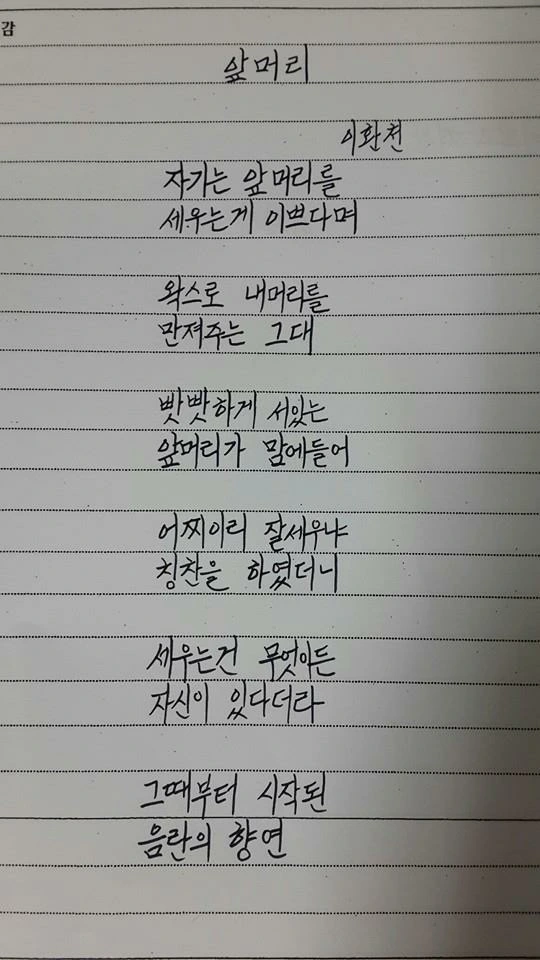 감
앞머리
이환천
자기는 앞머리를
세우는게 이쁘다며
왁스로 내머리를
만져주는 그대
빳빳하게 서있는
앞머리가 맘에들어
어찌이리 잘세우냐
칭찬을 하였더니
세우는건 무엇이든
자신이 있다더라
그때부터 시작된
음란의 향연